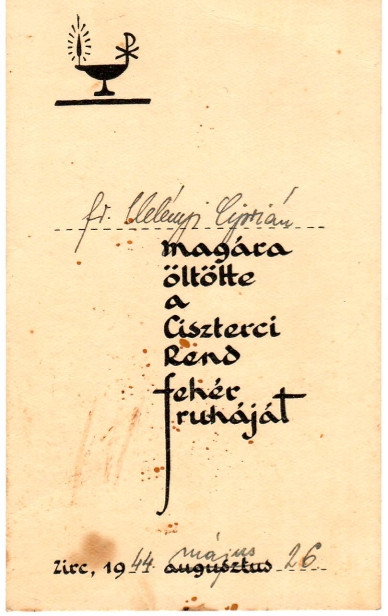 fr. Melényi Ciprián
magára
öltötte
a
Ciszterci
Rend
fehér
ruháját
Zirc, 1944. május augusztus 26